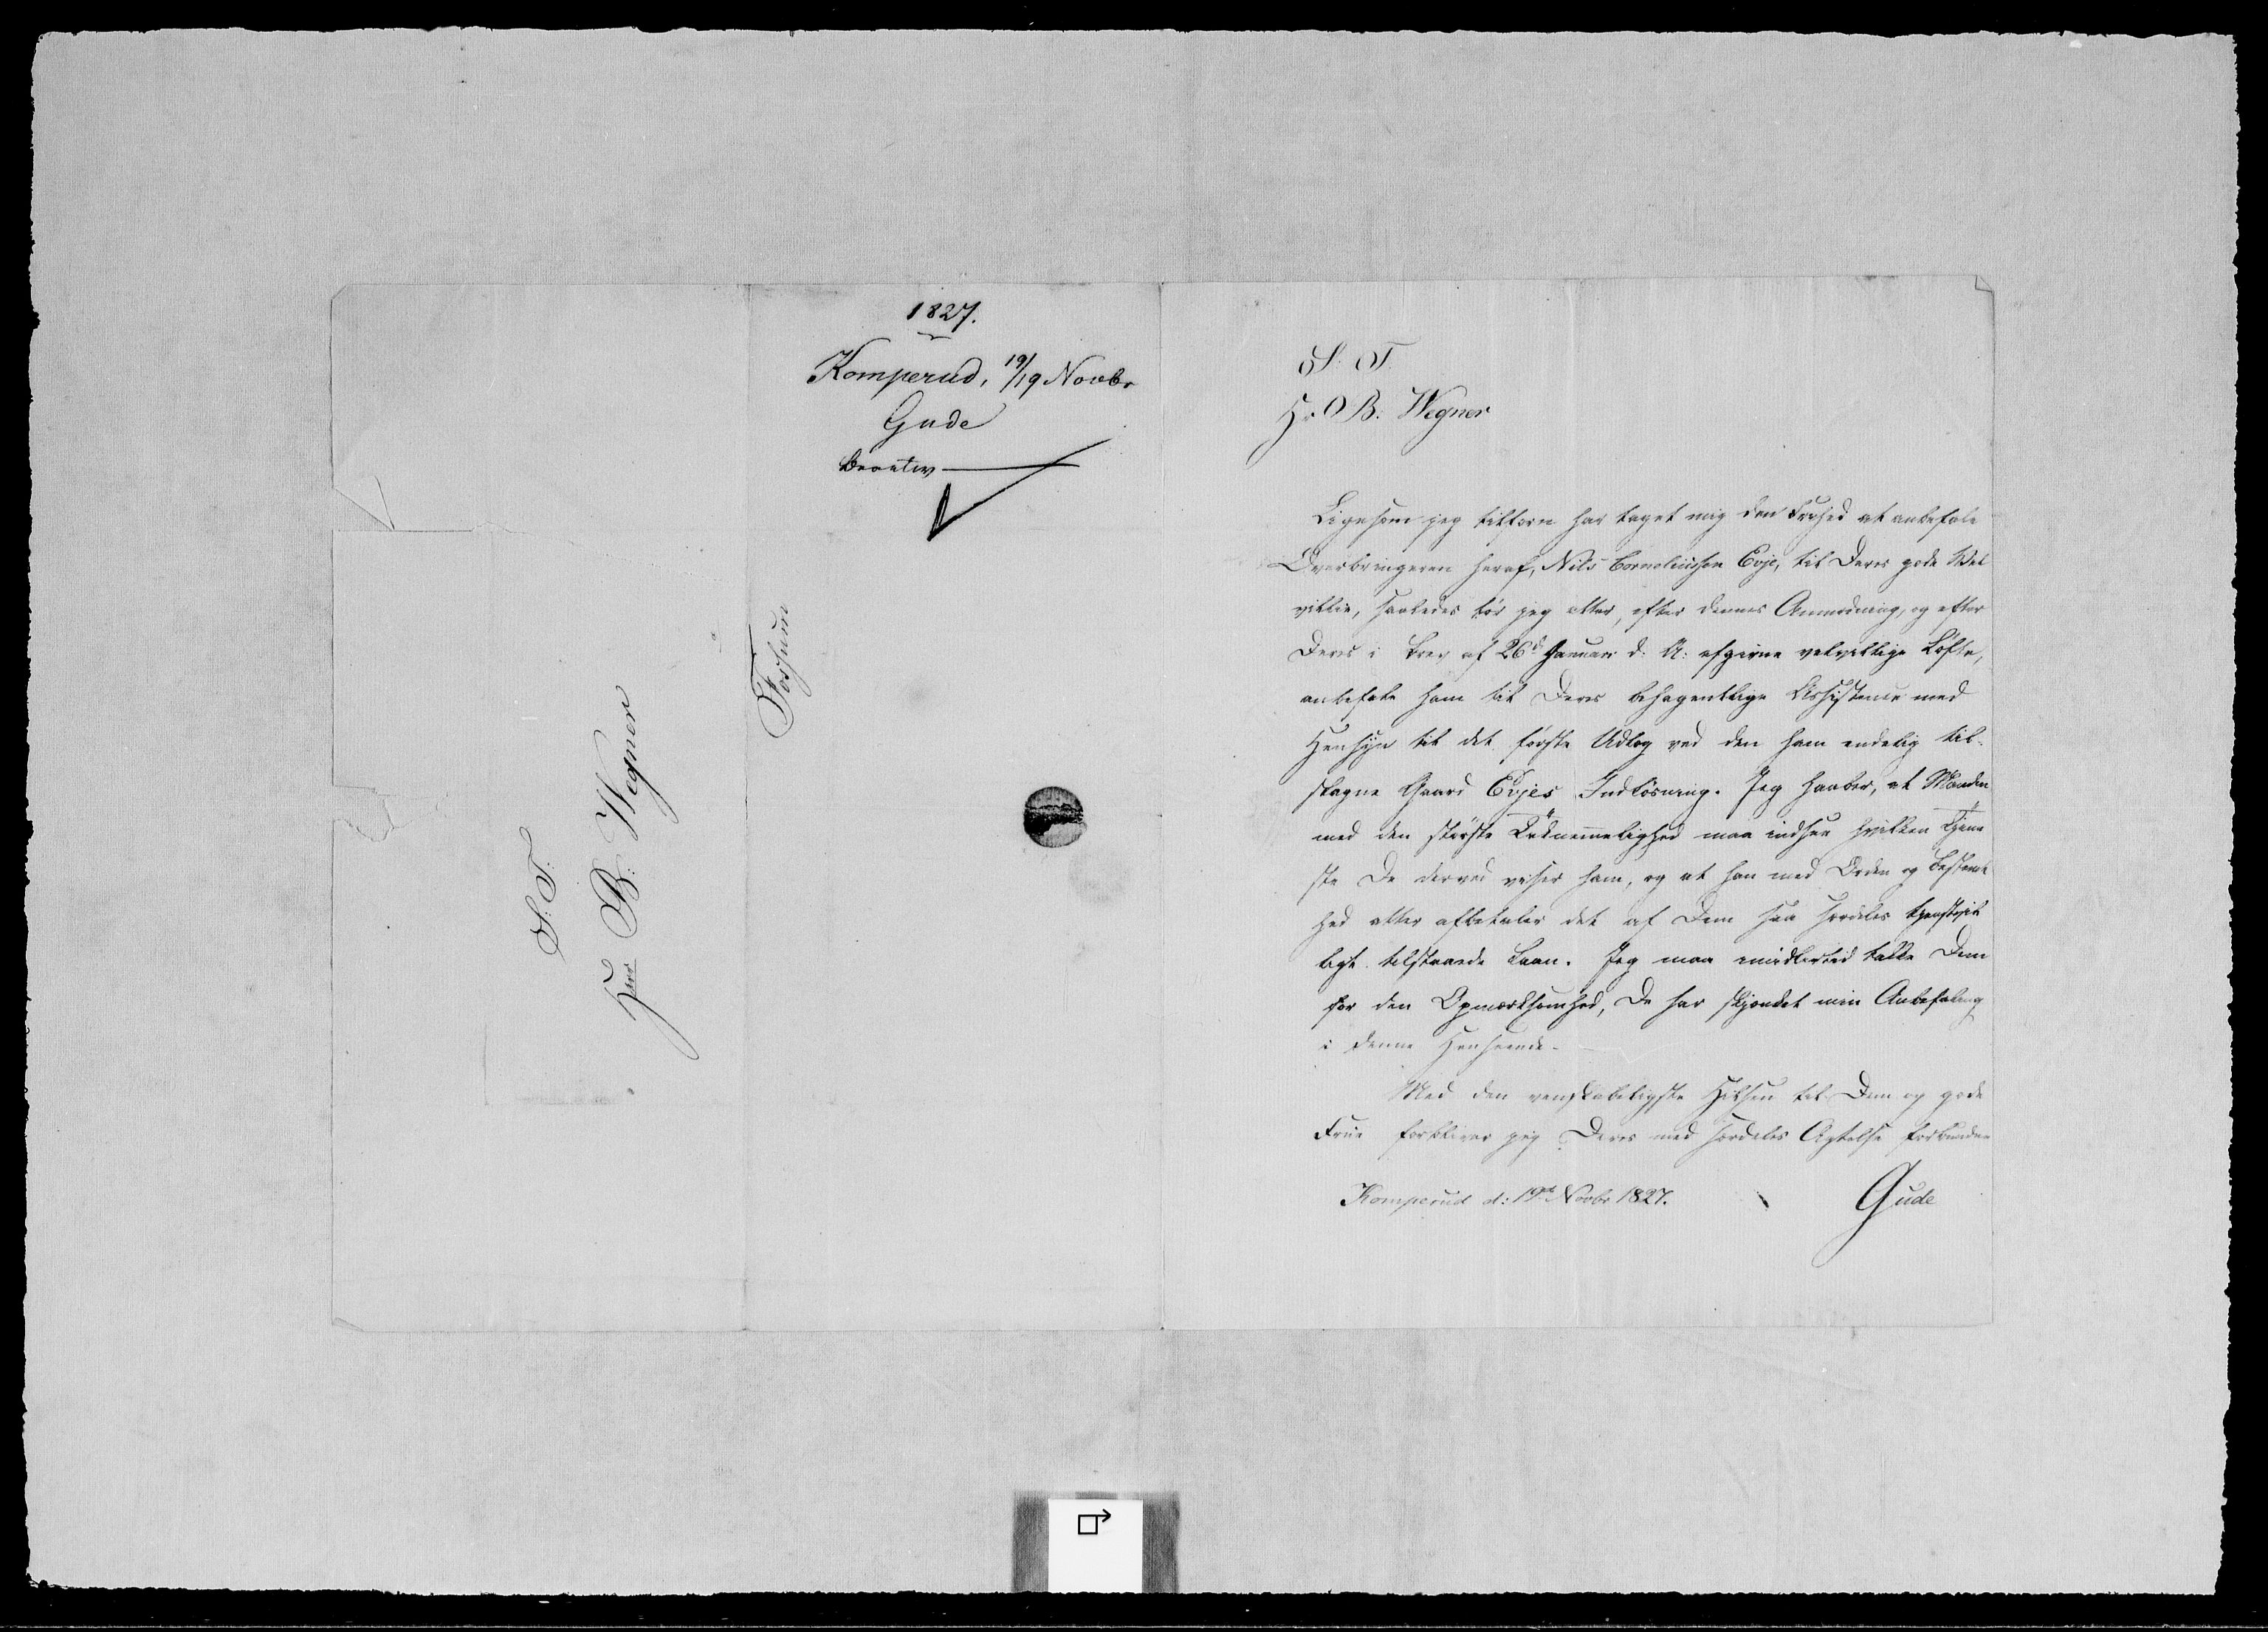 1827.
Komperud, 19/19 Novbr
Gude
Besvaret
S: T:
Herr B: Wegner
Fossum
S. T.
Hr. B: Wegner
Ligesom jeg tilforn har taget mig den Frihed at anbefale
Overbringeren heraf, Nils Corneliussen Evje, til Deres gode Vel
villie, saaledes tör jeg atter, efter dennes Anmodning, og efter
Deres i Brev af 26d Januari d: A: afgivne velvillige Löfte,
anbefale ham til Deres behagentlige Assistence med
Hensyn til det förste Udlæg ved den ham endelig til-
slagne Gaard Evjes Indlösning. Jeg haaber, at Manden
med den störste Taknemmelighed maa indsee hvilken Tjene
ste De derved viser ham, og at han med Orden og Bestemt
hed atter afbetaler det af Dem saa særdeles tjenstvil
ligt tilstaaede Laan. Jeg maa imidlertid takke Dem
for den Opmærksomhed, De har skjenket min Anbefaling
i denne Henseende.
Med den venskabeligste Hilsen til Dem og gode
Frue forbliver jeg Deres med særdeles Agtelse forbundne
Komperud d: 19d Novbr 1827.
Gude